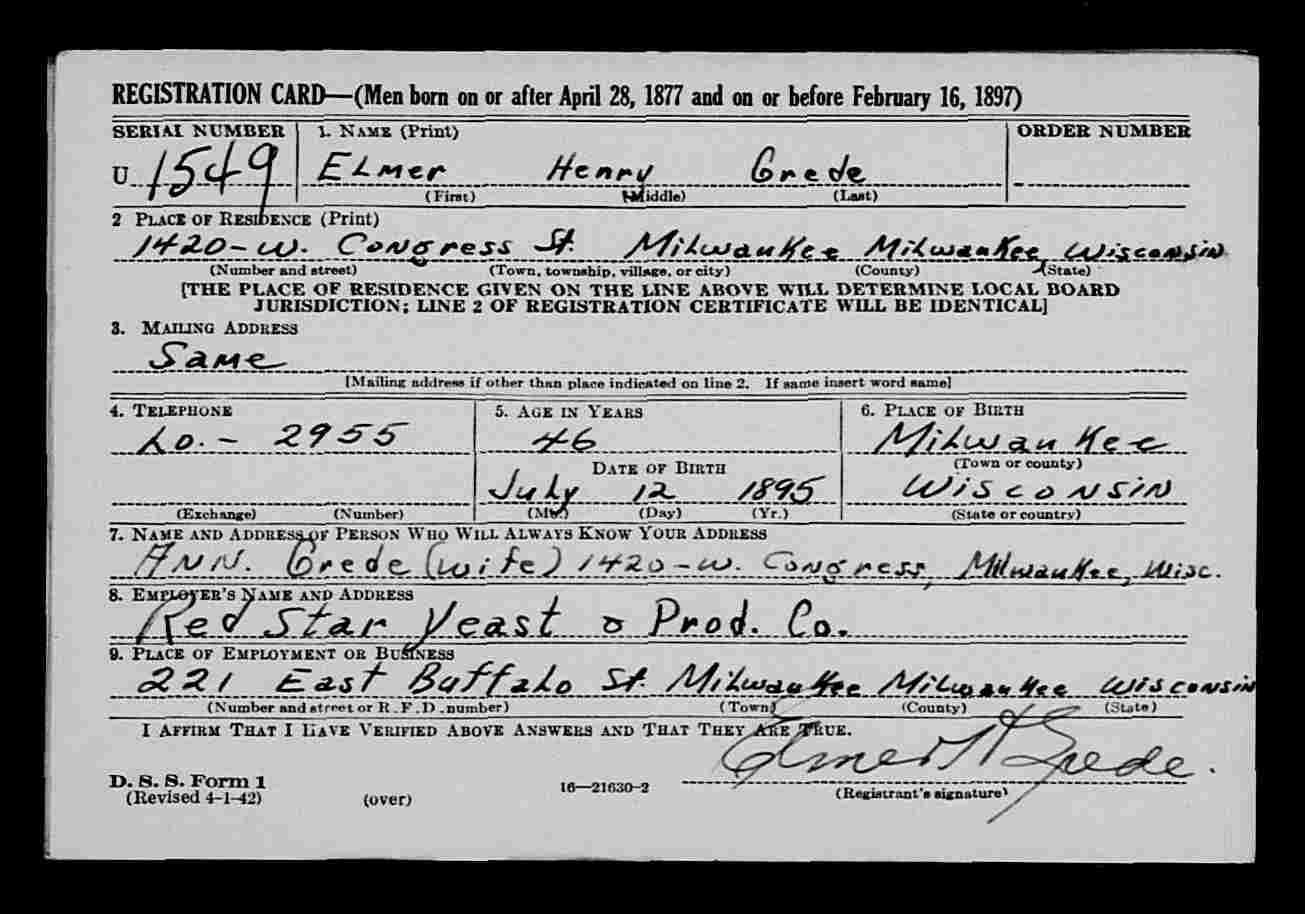 REGISTRATION CARD—(Men born on or after April 28, 1877 and on or before February 16, 1897)
SERIAL NUMBER 1. NAME (Print) ORDER NUMBER
U 1549 ELmer Henry Grede
(First) (Middle) (Last)
2 PLACE OF RESIDENCE (Print)
1420-W. Congress St. Milwaukee Milwaukee, Wisconsin
(Number and street) (Town, township, village, or city) (County) (State)
[THE PLACE OF RESIDENCE GIVEN ON THE LINE ABOVE WILL DETERMINE LOCAL BOARD
JURISDICTION; LINE 2 OF REGISTRATION CERTIFICATE WILL BE IDENTICAL]
3. MAILING ADDRESS
Same
[Mailing address if other than place indicated on line 2. If same insert word same]
4. TELEPHONE 5. AGE IN YEARS 6. PLACE OF BIRTH
Lo. - 2955 46 Milwaukee
DATE OF BIRTH (Town or county)
July 12 1895 Wisconsin
(Exchange) (Number) (Mo.) (Day) (Yr.) (State or country)
7. NAME AND ADDRESS OF PERSON WHO WILL ALWAYS KNOW YOUR ADDRESS
ANN. Grede (wife) 1420-W. Congress, Milwaukee, Wisc.
8. EMPLOYER'S NAME AND ADDRESS
Red Star Yeast & Prod. Co.
9. PLACE OF EMPLOYMENT OR BUSINESS
221 East Buffalo St. Milwaukee Milwaukee Wisconsin
(Number and street or R.F.D. number) (Town) (County) (State)
I AFFIRM THAT I HAVE VERIFIED ABOVE ANSWERS AND THAT THEY ARE TRUE.
Elmer H Grede.
D. S. S. Form 1
(Revised 4-1-42) (over) 16—21630-2 (Registrant's signature)